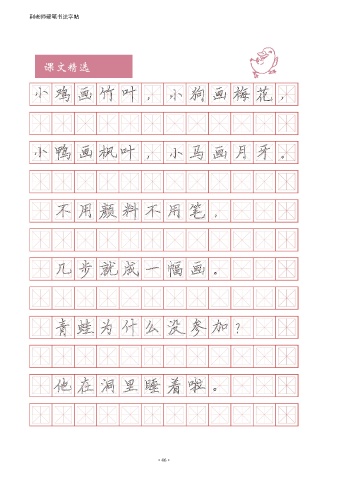 课文精选
小鸡画竹叶，小狗画梅花，
小鸭画枫叶，小马画月牙。
不用颜料不用笔，
几步就成一幅画。
青蛙为什么没参加？
他在洞里睡着啦。